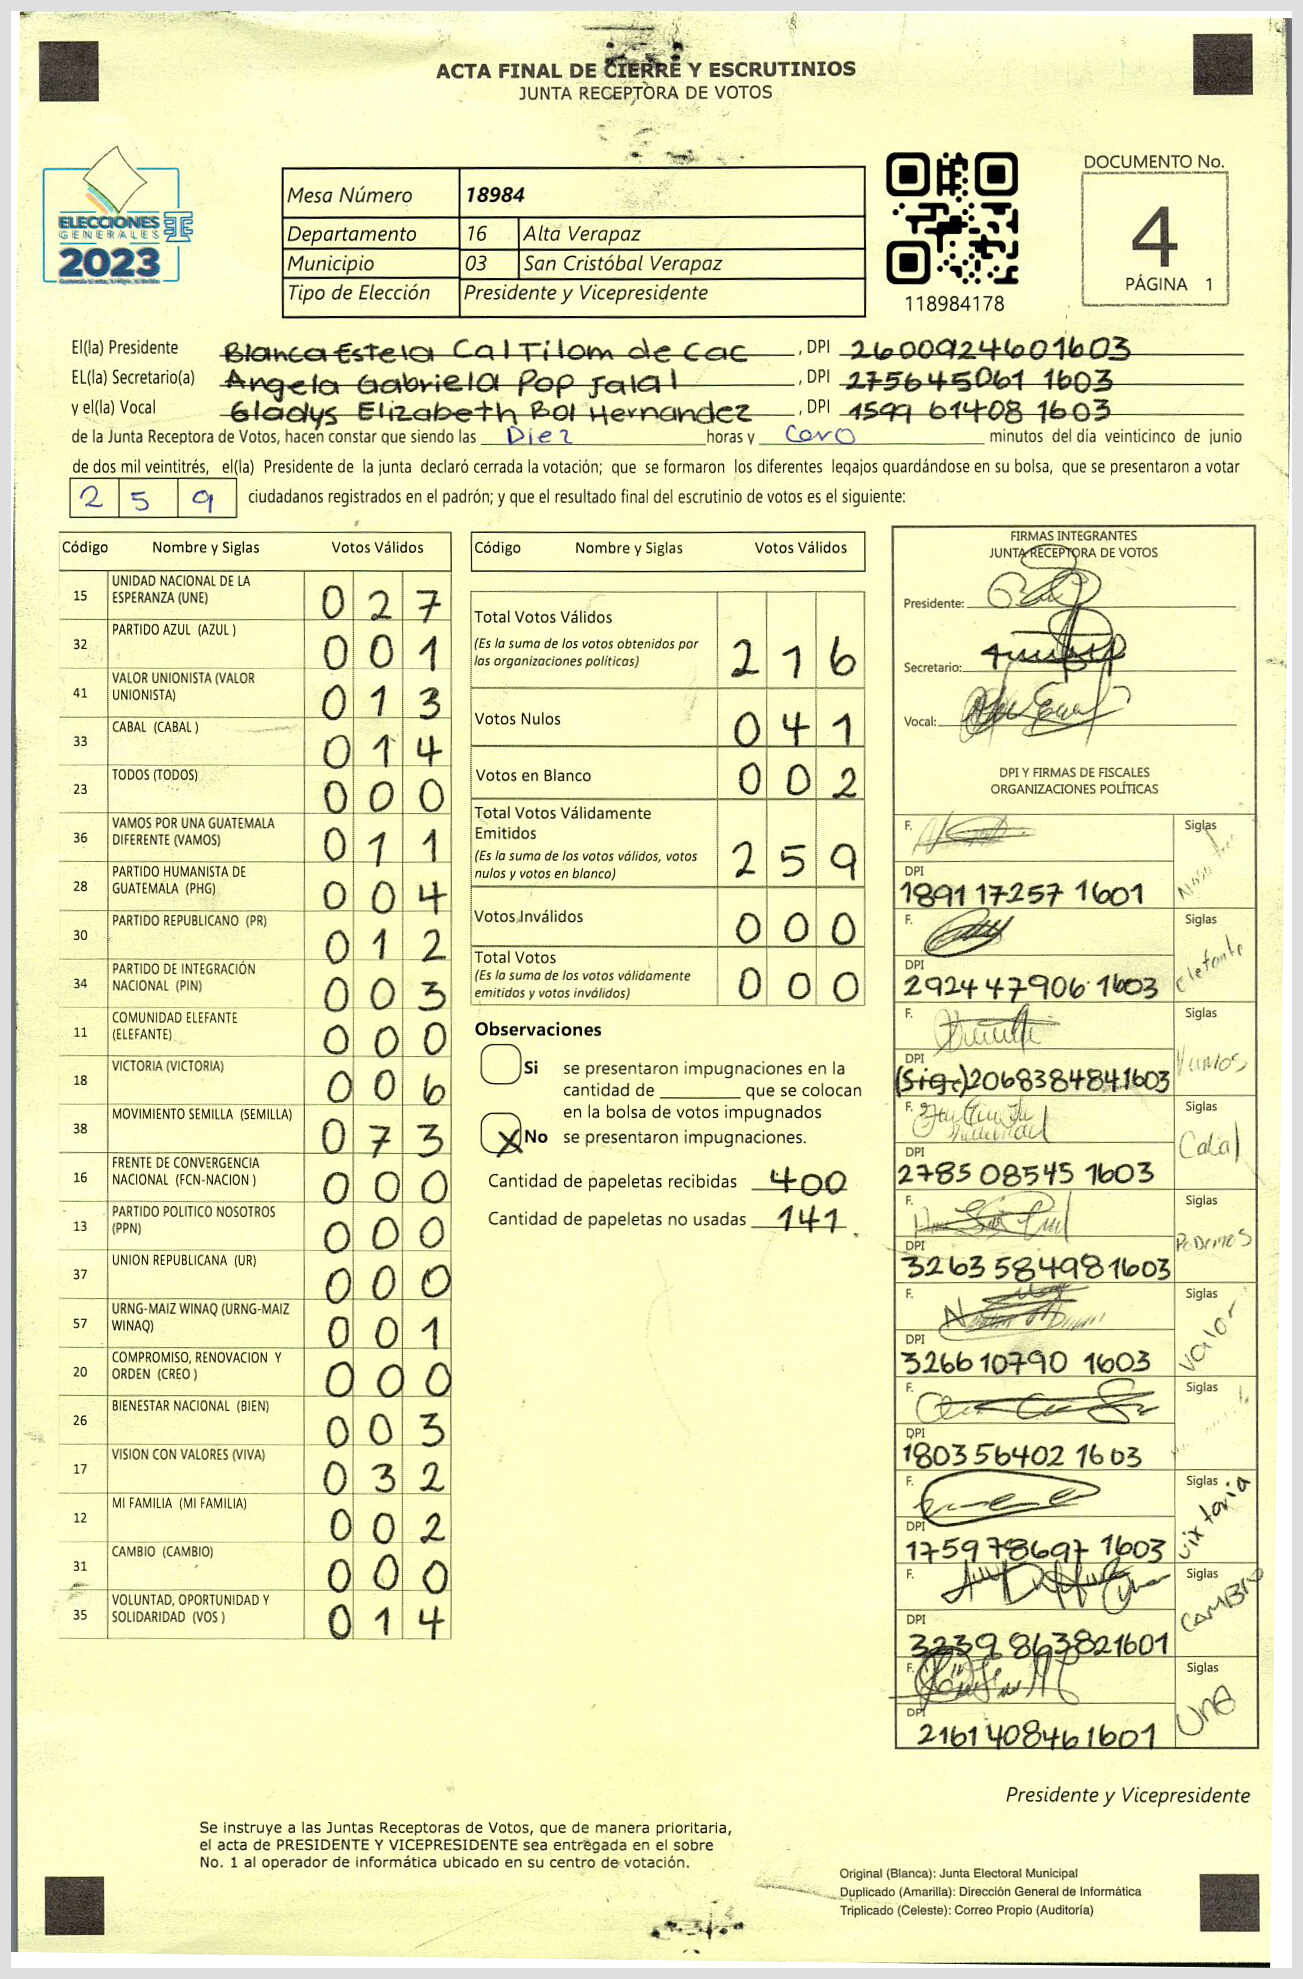 ACTA FINAL DE CIERRE Y ESCRUTINIOS
JUNTA RECEPTORA DE VOTOS
ELECCIONES
GENERALES
2023
Mesa Número 18984
Departamento 16 Alta Verapaz
Municipio 03 San Cristóbal Verapaz
Tipo de Elección Presidente y Vicepresidente
118984178
DOCUMENTO No.
4
PÁGINA 1
El(la) Presidente Blanca Estela Cal Tilom de Cac , DPI 2600924601603
EL(la) Secretario(a) Angela Gabriela Pop Jalal , DPI 275645061 1603
y el(la) Vocal Gladys Elizabeth Bol Hernandez , DPI 1599 61408 1603
de la Junta Receptora de Votos, hacen constar que siendo las Diez horas y Cero minutos del día veinticinco de junio
de dos mil veintitrés, el(la) Presidente de la junta declaró cerrada la votación; que se formaron los diferentes legajos guardándose en su bolsa, que se presentaron a votar
2 5 9 ciudadanos registrados en el padrón; y que el resultado final del escrutinio de votos es el siguiente:
Código Nombre y Siglas Votos Válidos
15 UNIDAD NACIONAL DE LA ESPERANZA (UNE) 0 2 7
32 PARTIDO AZUL (AZUL ) 0 0 1
41 VALOR UNIONISTA (VALOR UNIONISTA) 0 1 3
33 CABAL (CABAL ) 0 1 4
23 TODOS (TODOS) 0 0 0
36 VAMOS POR UNA GUATEMALA DIFERENTE (VAMOS) 0 1 1
28 PARTIDO HUMANISTA DE GUATEMALA (PHG) 0 0 4
30 PARTIDO REPUBLICANO (PR) 0 1 2
34 PARTIDO DE INTEGRACIÓN NACIONAL (PIN) 0 0 3
11 COMUNIDAD ELEFANTE (ELEFANTE) 0 0 0
18 VICTORIA (VICTORIA) 0 0 6
38 MOVIMIENTO SEMILLA (SEMILLA) 0 7 3
16 FRENTE DE CONVERGENCIA NACIONAL (FCN-NACION ) 0 0 0
13 PARTIDO POLITICO NOSOTROS (PPN) 0 0 0
37 UNION REPUBLICANA (UR) 0 0 0
57 URNG-MAIZ WINAQ (URNG-MAIZ WINAQ) 0 0 1
20 COMPROMISO, RENOVACION Y ORDEN (CREO ) 0 0 0
26 BIENESTAR NACIONAL (BIEN) 0 0 3
17 VISION CON VALORES (VIVA) 0 3 2
12 MI FAMILIA (MI FAMILIA) 0 0 2
31 CAMBIO (CAMBIO) 0 0 0
35 VOLUNTAD, OPORTUNIDAD Y SOLIDARIDAD (VOS ) 0 1 4
Código Nombre y Siglas Votos Válidos
Total Votos Válidos
(Es la suma de los votos obtenidos por
las organizaciones políticas) 2 1 6
Votos Nulos 0 4 1
Votos en Blanco 0 0 2
Total Votos Válidamente
Emitidos
(Es la suma de los votos válidos, votos
nulos y votos en blanco) 2 5 9
Votos Inválidos 0 0 0
Total Votos
(Es la suma de los votos válidamente
emitidos y votos inválidos) 0 0 0
Observaciones
Si se presentaron impugnaciones en la
cantidad de ________ que se colocan
en la bolsa de votos impugnados
X No se presentaron impugnaciones.
Cantidad de papeletas recibidas 400
Cantidad de papeletas no usadas 141.
FIRMAS INTEGRANTES
JUNTA RECEPTORA DE VOTOS
Presidente:
Secretario:
Vocal:
DPI Y FIRMAS DE FISCALES
ORGANIZACIONES POLÍTICAS
F. Siglas
DPI
1891 17257 1601
F. Siglas elefante
DPI
2924 47906 1603
F. Siglas Vamos
DPI
(Sigc)2068384841603
F. Siglas Cabal
DPI
2785 08545 1603
F. Siglas Podemos
DPI
3263 584981603
F. Siglas Valor
DPI
3266 10790 1603
F. Siglas
DPI
180356402 1603
F. Siglas vixtoria
DPI
1759 78697 1603
F. Siglas CAMBIO
DPI
3239 863821601
F. Siglas UNE
DPI
2161408461601
Presidente y Vicepresidente
Se instruye a las Juntas Receptoras de Votos, que de manera prioritaria,
el acta de PRESIDENTE Y VICEPRESIDENTE sea entregada en el sobre
No. 1 al operador de informática ubicado en su centro de votación.
Original (Blanca): Junta Electoral Municipal
Duplicado (Amarilla): Dirección General de Informática
Triplicado (Celeste): Correo Propio (Auditoría)